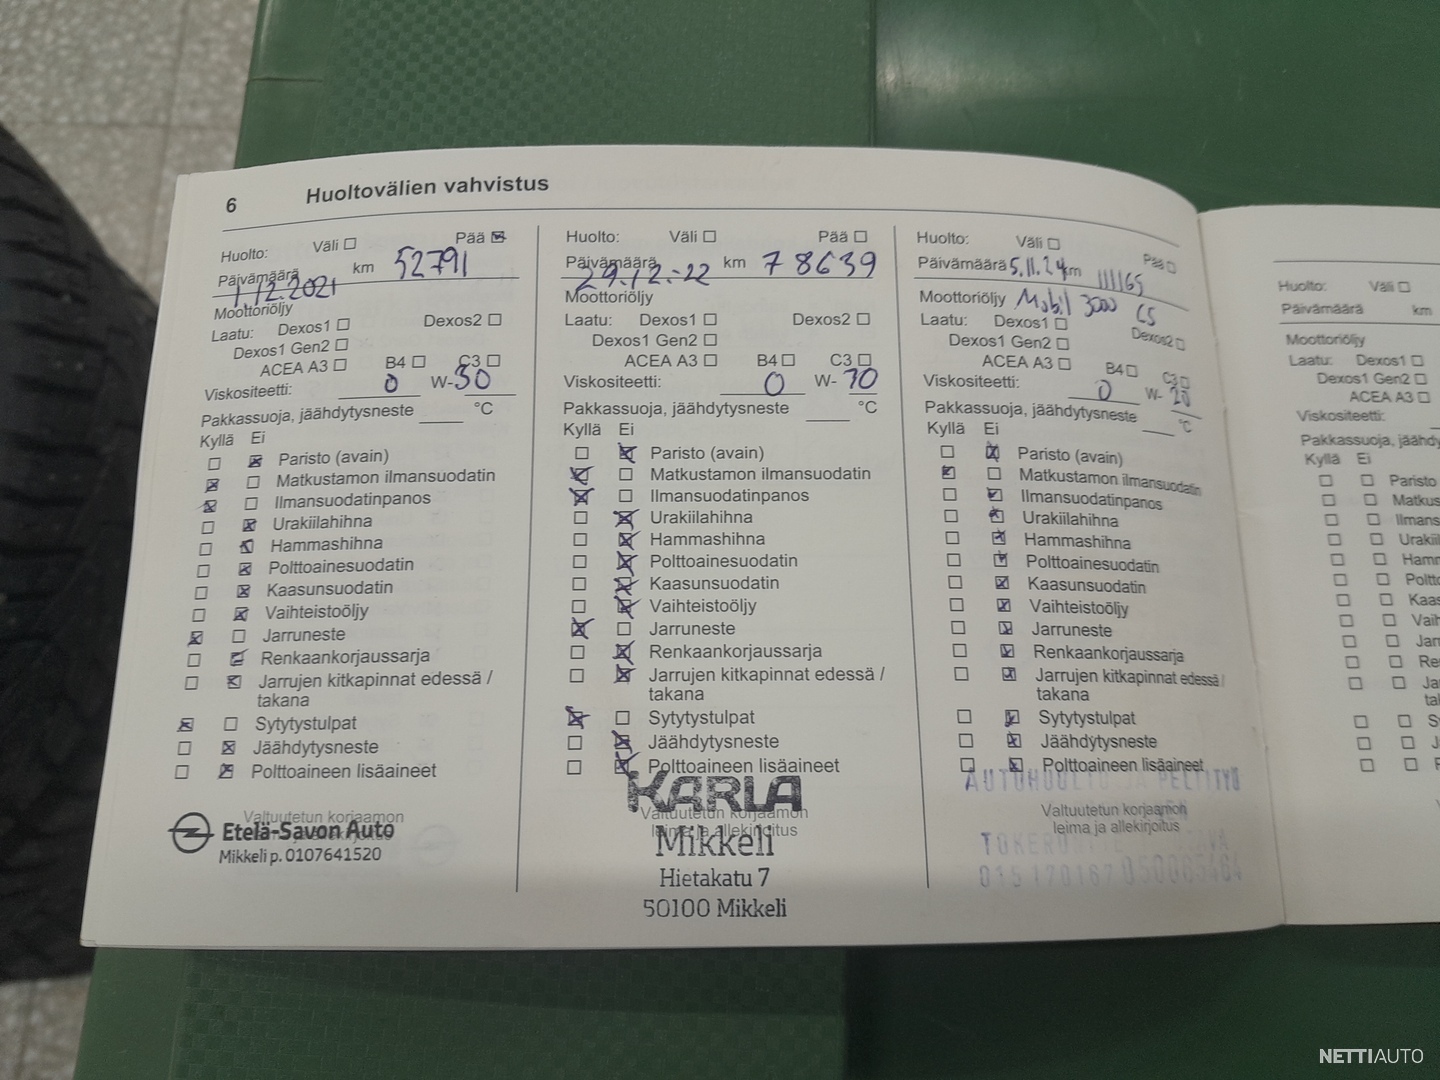 6 Huoltovälien vahvistus
Huolto: Väli Pää
Päivämäärä 1.12.2021 km 52791
Moottoriöljy
Laatu: Dexos1 Dexos2
Dexos1 Gen2
ACEA A3 B4 C3
Viskositeetti: 0 W-30
Pakkassuoja, jäähdytysneste °C
Kyllä Ei
Paristo (avain)
Matkustamon ilmansuodatin
Ilmansuodatinpanos
Urakiilahihna
Hammashihna
Polttoainesuodatin
Kaasunsuodatin
Vaihteistoöljy
Jarruneste
Renkaankorjaussarja
Jarrujen kitkapinnat edessä /
takana
Sytytystulpat
Jäähdytysneste
Polttoaineen lisäaineet
Valtuutetun korjaamon
Etelä-Savon Auto
Mikkeli p. 0107641520
Huolto: Väli Pää
Päivämäärä 29.12.-22 km 78639
Moottoriöljy
Laatu: Dexos1 Dexos2
Dexos1 Gen2
ACEA A3 B4 C3
Viskositeetti: 0 W-
Pakkassuoja, jäähdytysneste °C
Kyllä Ei
Paristo (avain)
Matkustamon ilmansuodatin
Ilmansuodatinpanos
Urakiilahihna
Hammashihna
Polttoainesuodatin
Kaasunsuodatin
Vaihteistoöljy
Jarruneste
Renkaankorjaussarja
Jarrujen kitkapinnat edessä /
takana
Sytytystulpat
Jäähdytysneste
Polttoaineen lisäaineet
KARLA
Valtuutetun korjaamon
leima ja allekirjoitus
Mikkeli
Hietakatu 7
50100 Mikkeli
Huolto: Väli Pää
Päivämäärä 5.11.24 km 111165
Moottoriöljy Mobil 3000
Laatu: Dexos1 Dexos2
Dexos1 Gen2
ACEA A3 B4 C3
Viskositeetti: 0 W-20
Pakkassuoja, jäähdytysneste °C
Kyllä Ei
Paristo (avain)
Matkustamon ilmansuodatin
Ilmansuodatinpanos
Urakiilahihna
Hammashihna
Polttoainesuodatin
Kaasunsuodatin
Vaihteistoöljy
Jarruneste
Renkaankorjaussarja
Jarrujen kitkapinnat edessä /
takana
Sytytystulpat
Jäähdytysneste
Polttoaineen lisäaineet
AUTOHUOLTO JA PELTITYÖ
Valtuutetun korjaamon
leima ja allekirjoitus
Huolto: Väli
Päivämäärä km
Moottoriöljy
Laatu: Dexos1
Dexos1 Gen2
ACEA A3
Viskositeetti:
Pakkassuoja, jäähdy
Kyllä Ei
Paristo
Matkus
Ilmans
Urakiil
Hamm
Poltto
Kaas
Vaih
Jarr
Re
Ja
NETTIAUTO